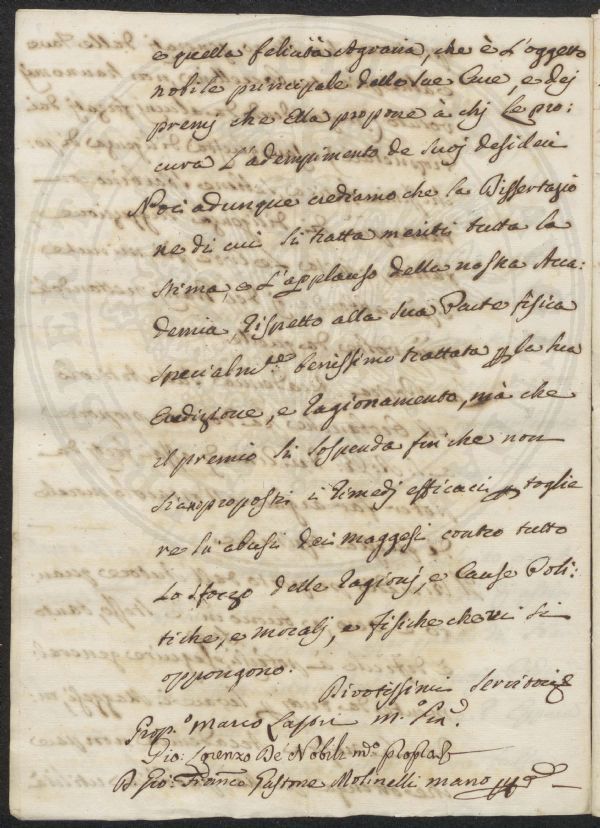 e quella felicità Agraria, che è l'oggetto
nobile principale delle sue Cure, e dej
premj che Ella propone à chj le pro:
cura l'adempimento de suoj desiderj
Noi adunque crediamo che la Dissertazio
ne di cui si tratta meriti tutta la
stima, e l'applauso della nostra Acca:
demia rispetto alla sua Parte fisica
specialm.te benissimo trattata p la sua
Erudizione, e ragionamento, mà che
il premio si sospenda finche non
sian proposti i rimedj efficaci p toglie
re li abusi dei maggesi contro tutto
lo sforzo delle ragionj, e Cause Poli:
tiche, e moralj, e fisiche che vi si
oppongono.
Divotissimi Servitori
Prop.o Marco Lastri m.o
Gio: Lorenzo De Nobili m.o
D. Gio: Franco Gastone Molinelli mano